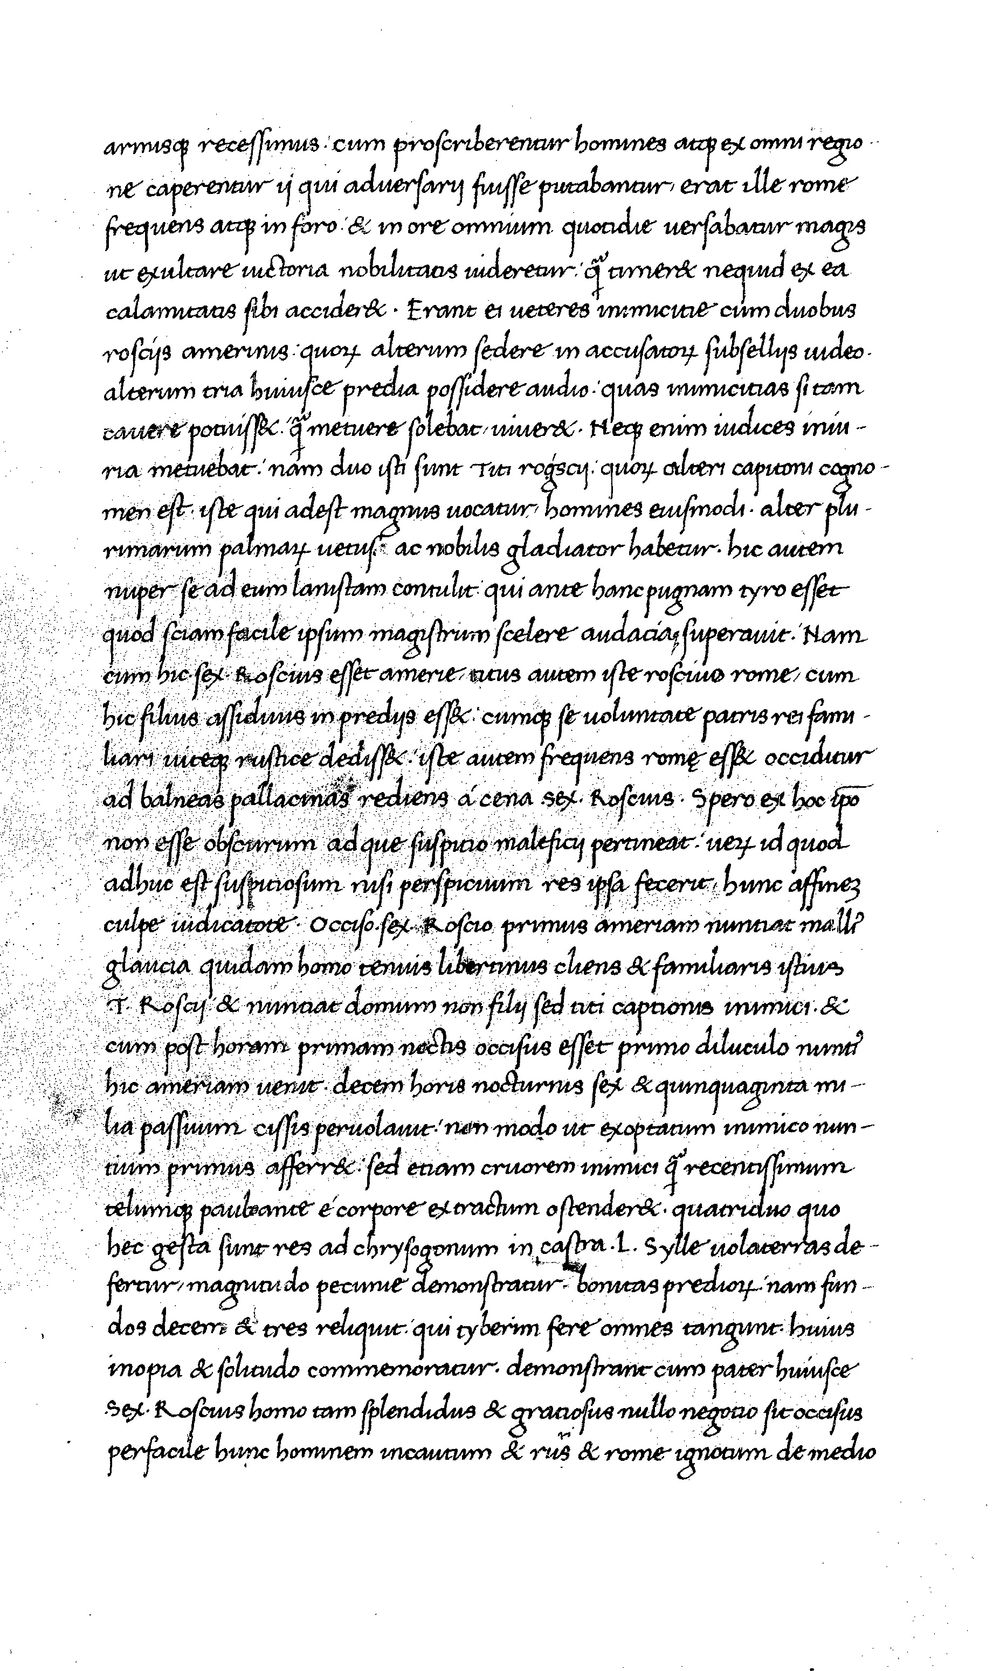 armisq; recessimus: cum proscriberentur homines atq; ex omni regio-
ne caperentur ij qui adversarij fuisse putabantur, erat ille rome
frequens atq; in foro: & in ore omnium quotidie versabatur magis
ut exultare victoria nobilitatis videretur: q̃ timer& nequid ex ea
calamitatis sibi accider&. Erant ei veteres inimicitie cum duobus
roscijs amerinis: quoꝝ alterum sedere in accusatoꝝ subsellijs video.
alterum tria huiusce predia possidere audio: quas inimicitias si tam
cavere potuiss&: q̃ metuere solebat, viver&. Neq; enim iudices iniu-
ria metuebat: nam duo isti sunt Titi roscij: quoꝝ alteri capitoni cogno-
men est. iste qui adest magnus vocatur, homines eiusmodi. alter plu-
rimarum palmaꝝ vetus ac nobilis gladiator habetur. hic autem
nuper se ad eum lanistam contulit: qui ante hanc pugnam tyro esset
quod sciam facile ipsum magistrum scelere audaciaq; superavit. Nam
cum hic sex. Roscius esset amerie, titus autem iste roscius rome, cum
hic filius assiduus in predijs ess&: cumq; se voluntate patris rei fami-
liari viteq; rustice dediss&: iste autem frequens romę ess& occiditur
ad balneas pallacinas rediens á cena sex. Roscius. Spero ex hoc ip̃o
non esse obscurum ad que suspitio maleficij pertineat: veꝝ id quod
adhuc est suspitiosum nisi perspicuum res ipsa fecerit, hunc affinez
culpe iudicatote. Occiso sex. Roscio primus ameriam nuntiat mall⁹
glaucia quidam homo tenuis libertinus cliens & familiaris istius
T. Roscij & nuntiat domum non filij sed titi capitonis inimici. &
cum post horam primam noctis occisus esset primo diluculo nunti⁹
hic ameriam venit. decem horis nocturnis sex & quinquaginta mi-
lia passuum cissis pervolavit: non modo ut exoptatum inimico nun-
tium primus afferr&: sed etiam cruorem inimici q̃ recentissimum
telumq; paulo ante é corpore extractum ostender&. quatriduo quo
hec gesta sunt res ad chrysogonum in castra .L. Sylle volaterras de-
fertur, magnitudo pecunie demonstratur. bonitas predioꝝ: nam fun-
dos decem & tres reliquit: qui tyberim fere omnes tangunt. huius
inopia & solitudo commemoratur. demonstrant cum pater huiusce
Sex. Roscius homo tam splendidus & gratiosus nullo negotio sit occisus
perfacile hunc hominem incautum & rus & rome ignotum de medio